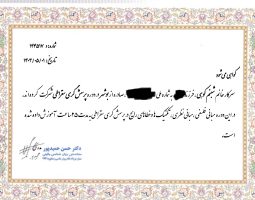 شماره: ۲۴۴۵۷۲
تاریخ: ۱۴۰۲/۰۵/۰۸
گواهی می‌شود
سرکار خانم شبنم کوهی، فرزند به شماره ملی صادره از بوشهر در دوره پرسش‌گری سقراطی شرکت کرده‌اند.
در این دوره مبانی فلسفی، مبانی نظری، تکنیک‌ها و خطاهای رایج در پرسش‌گری سقراطی به مدت ۲۵ ساعت آموزش داده شده
است.
دکتر حسن حمیدپور